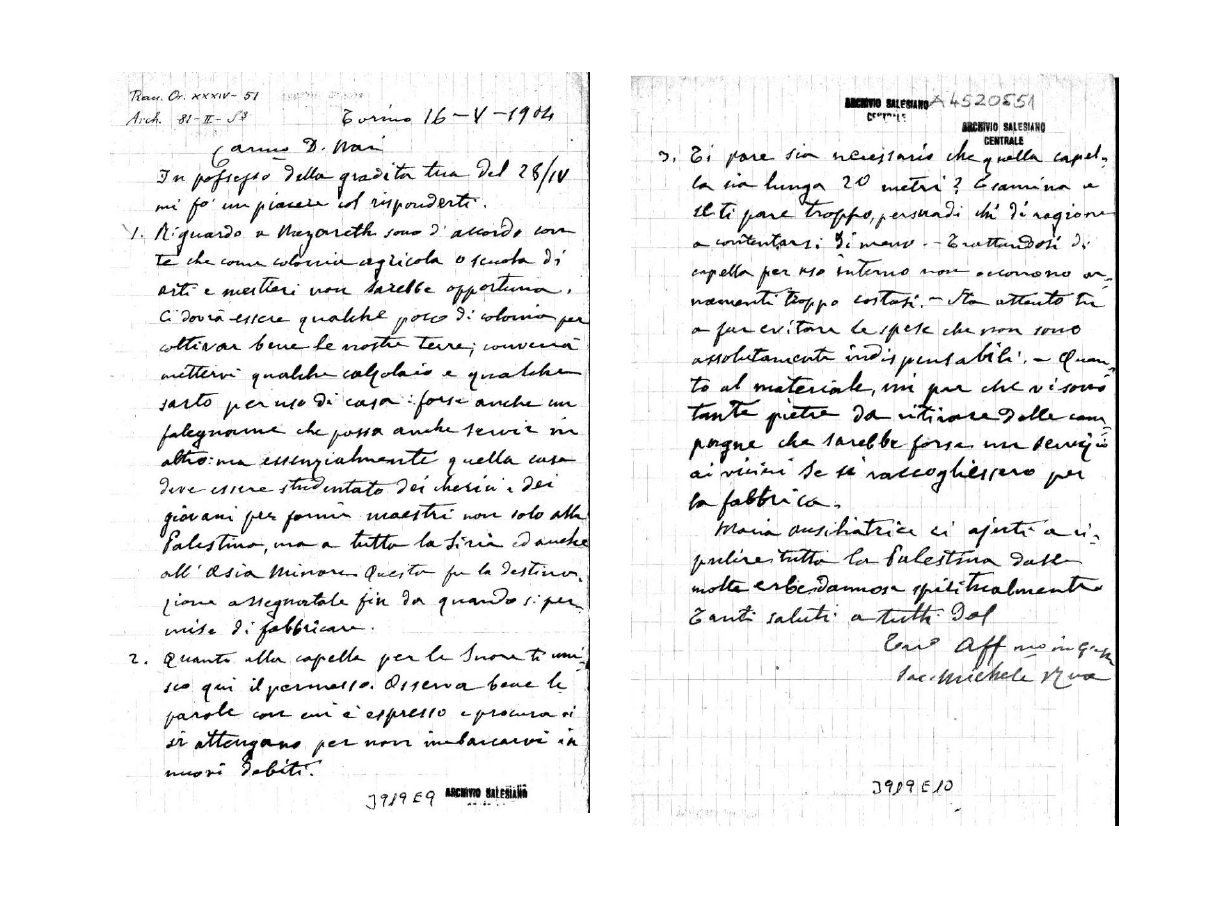 Tran. Or. XXXIV - 51
Arch. 81-II-53
Torino 16-V-1904
Carmo D. Nai
In possesso della gradita tua del 28/IV
mi fo' un piacere col risponderti.
1. Riguardo a Nazareth sono d'accordo con
te che come colonia agricola o scuola di
arti e mestieri non sarebbe opportuna.
Ci dovrà essere qualche poco di colonia per
coltivar bene le nostre terre; converrà
mettervi qualche calzolaio e qualche
sarto per uso di casa: forse anche un
falegname che possa anche servir in
altro: ma essenzialmente quella casa
deve essere studentato dei chierici e dei
giovani per fornir maestri non solo alla
Palestina, ma a tutta la Siria ed anche
all'Asia Minore. Questa fu la destina-
zione assegnatale fin da quando si per-
mise di fabbricare.
2. Quanto alla capella per le Suore ti uni-
sco qui il permesso. Osserva bene le
parole con cui è espresso e procura vi
si attengano per non imbarcarvi in
nuovi debiti.
J919E9 ARCHIVIO SALESIANO
ARCHIVIO SALESIANO A4520551
CENTRALE
ARCHIVIO SALESIANO
CENTRALE
3. Ti pare sia necessario che quella capel-
la sia lunga 20 metri? Esamina e
se ti pare troppo, persuadi chi di ragione
a contentarsi di meno. - Trattandosi di
capella per uso interno non occorrono or-
namenti troppo costosi. - Sta attento tu
a far evitare le spese che non sono
assolutamente indispensabili. - Quan-
to al materiale, mi par che vi sono
tante pietre da ritirare dalle cam-
pagne che sarebbe forse un servizio
ai vicini se si raccogliessero per
la fabbrica.
Maria Ausiliatrice ci ajuti a ri-
pulire tutta la Palestina dalle
molte erbe dannose spiritualmente
Tanti saluti a tutti dal
Tuo Affmo in G.
Sac. Michele Rua
J919E10